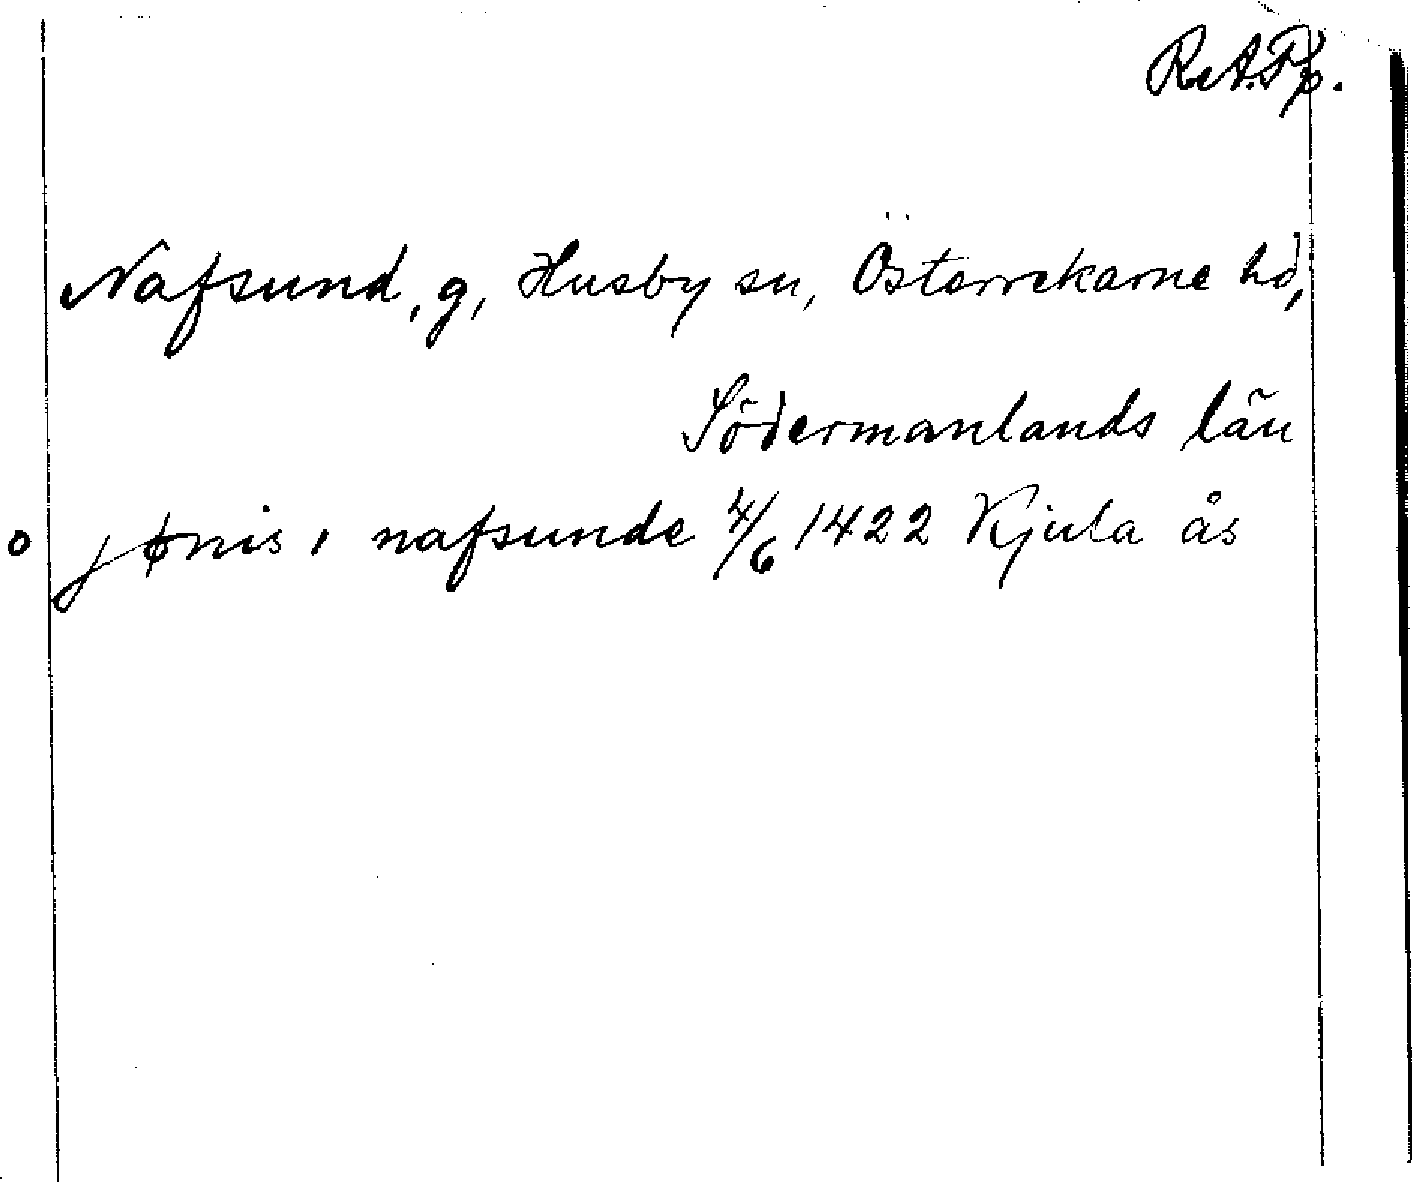 R.A.Pp.
Nafsund, g, Husby sn, Österrekarne hd,
Södermanlands län
o jønis, nafsunde 4/6 1422 Kjula ås